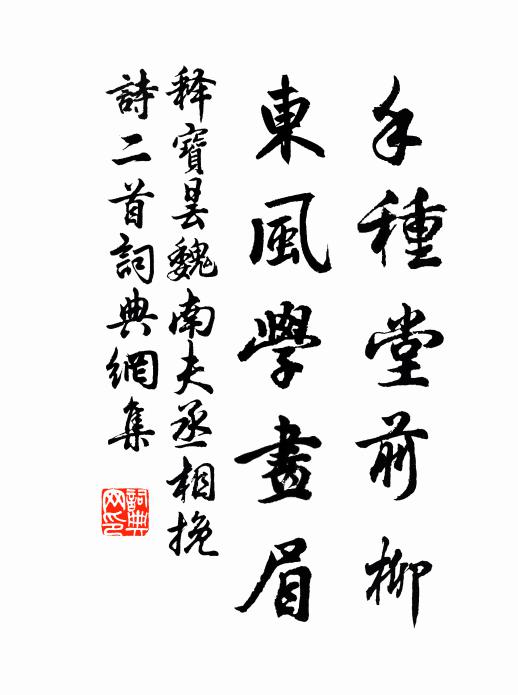 手種堂前柳
東風學畫眉
釋寶曇魏南夫丞相挽
詩二首詞典網集
詞典
网印